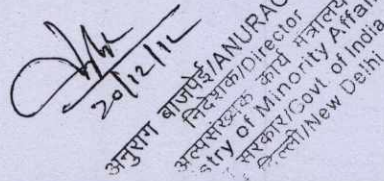 20/12/12
अनुराग बाजपेई/ANURAG
निदेशक/Director
अल्पसंख्यक कार्य मंत्रालय
stry of Minority Affair
सरकार/Govt. of India
दिल्ली/New Delhi